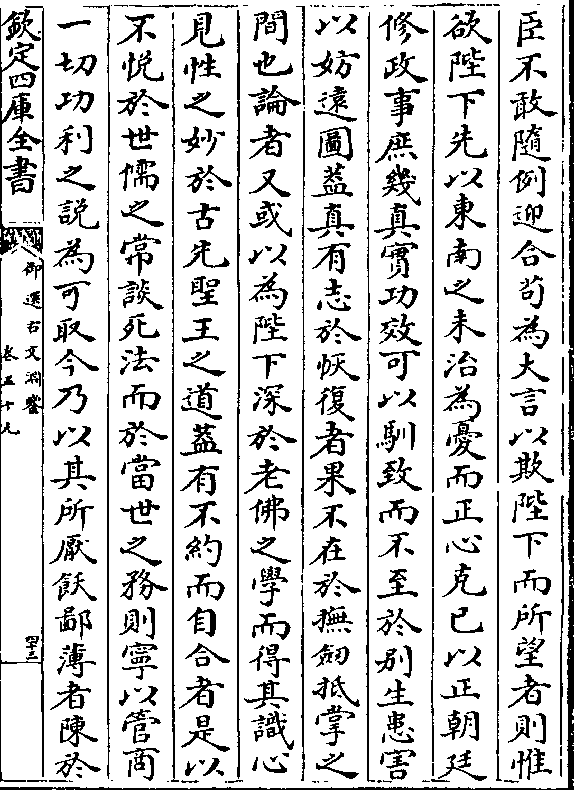 臣不敢隨例迎合苟為大言以欺陛下而所望者則惟
欲陛下先以東南之未治為憂而正心克已以正朝廷
修政事庶幾真實功效可以馴致而不至於别生患害
以妨遠圖蓋真有志於恢復者果不在於撫劒抵掌之
間也論者又或以為陛下深於老佛之學而得其識心
見性之妙於古先聖王之道蓋有不約而自合者是以
不悦於世儒之常談死法而於當世之務則寧以管商
一切功利之説為可取今乃以其所厭飫鄙薄者陳於
欽定四庫全書
御選古文淵鑒
卷五十九
四十三